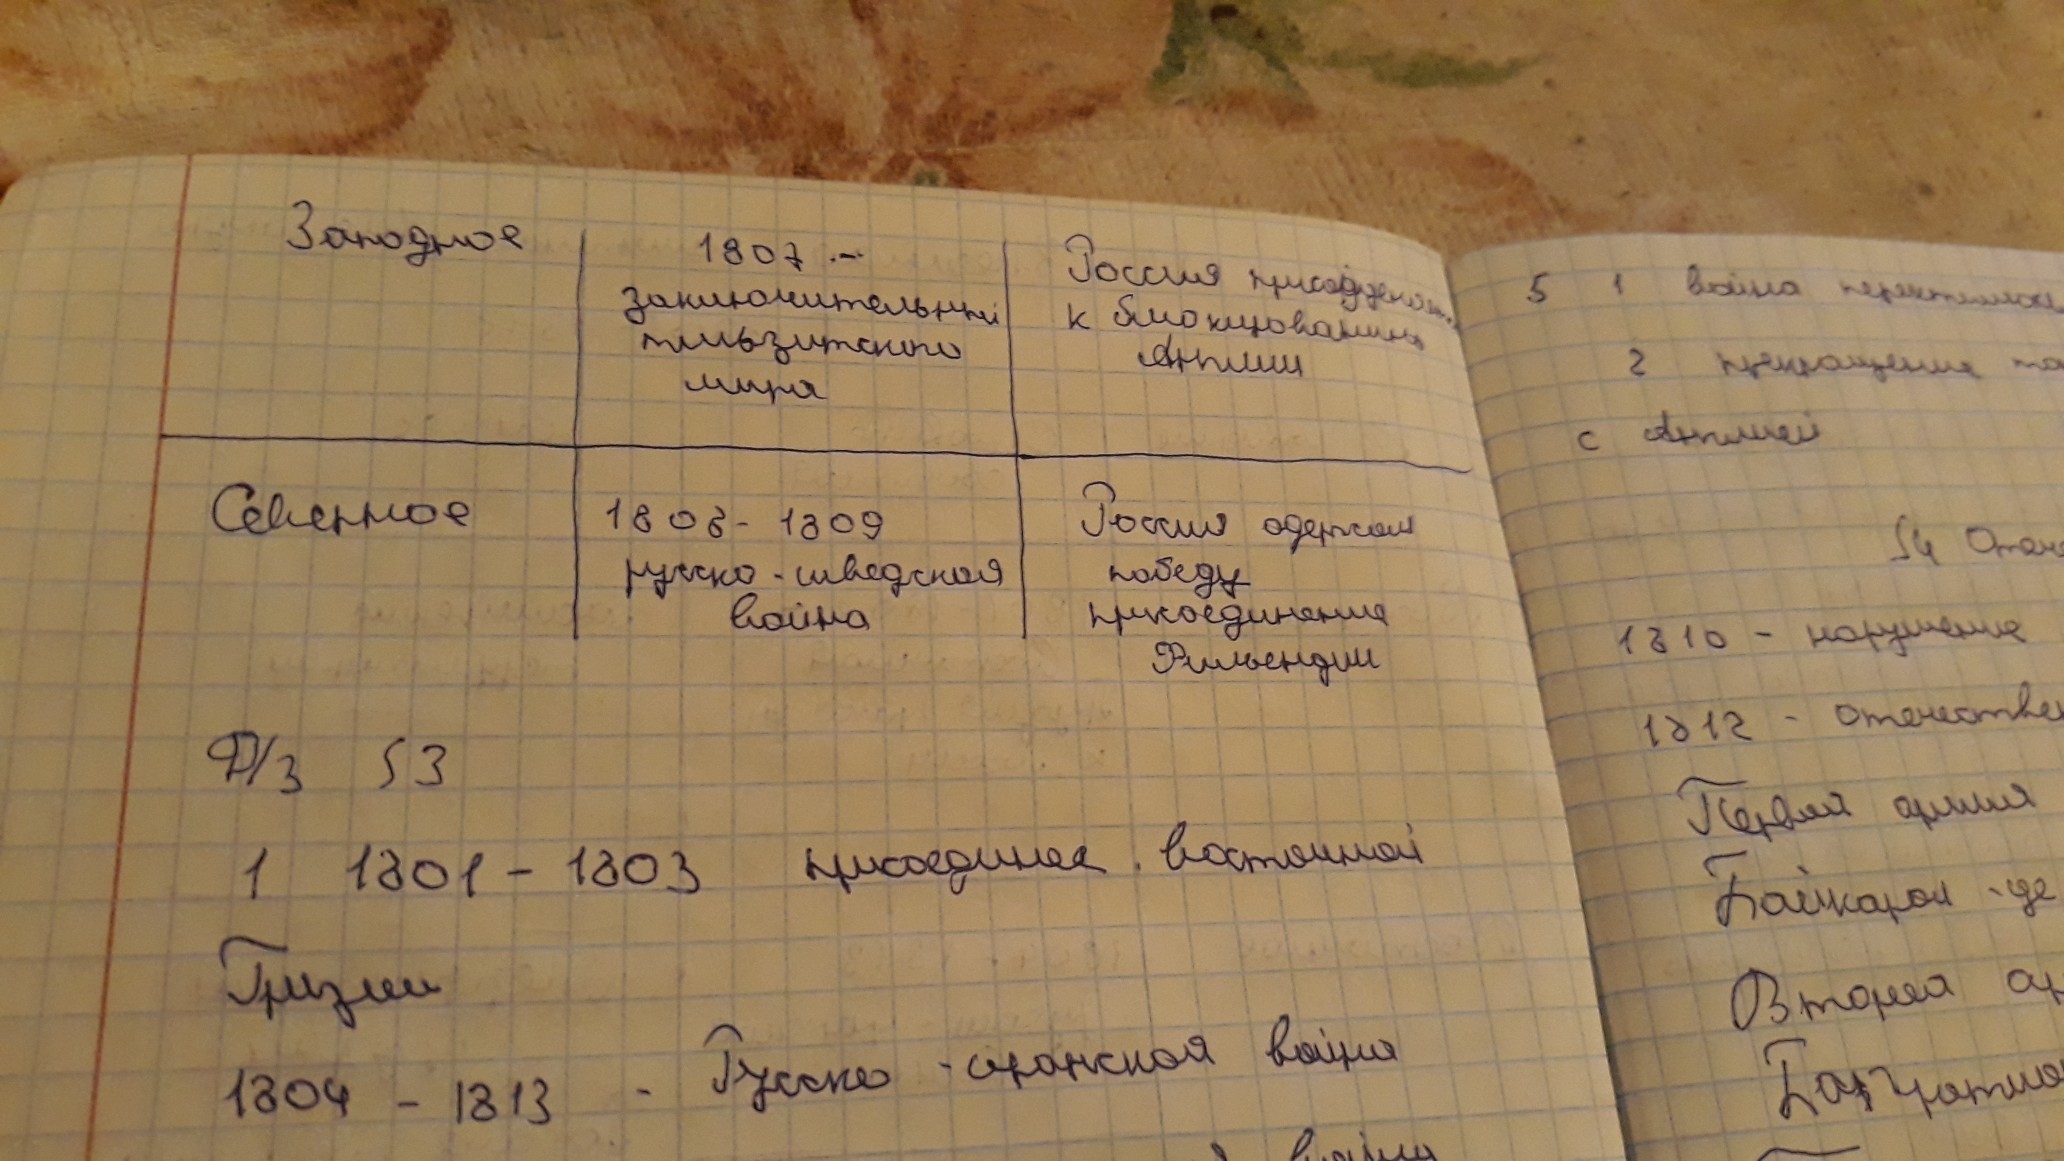 Западное
1807 -
заключительный
тильзитского
мира
Россия присоединен
к блокированию
Англии
Северное
1808 - 1809
русско - шведская
война
Россия одержал
победу
присоединение
Фильендии
Д/З §3
1 1801 - 1803 присоединее восточной
Грузии
1804 - 1813 - Русско - иранская война
война
5 1 война
2 прекращение
с Англией
§4 Отече
1810 - нарушение
1812 - отечествен
Первая армия
Баркарол - де
Вторая ар
Багратион